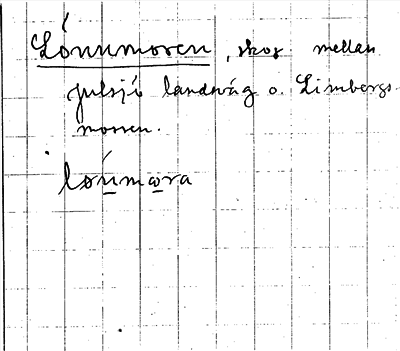 Lónnmoren, skog mellan
Julsjö landsväg o. Limbergs-
mossen.
lónmora